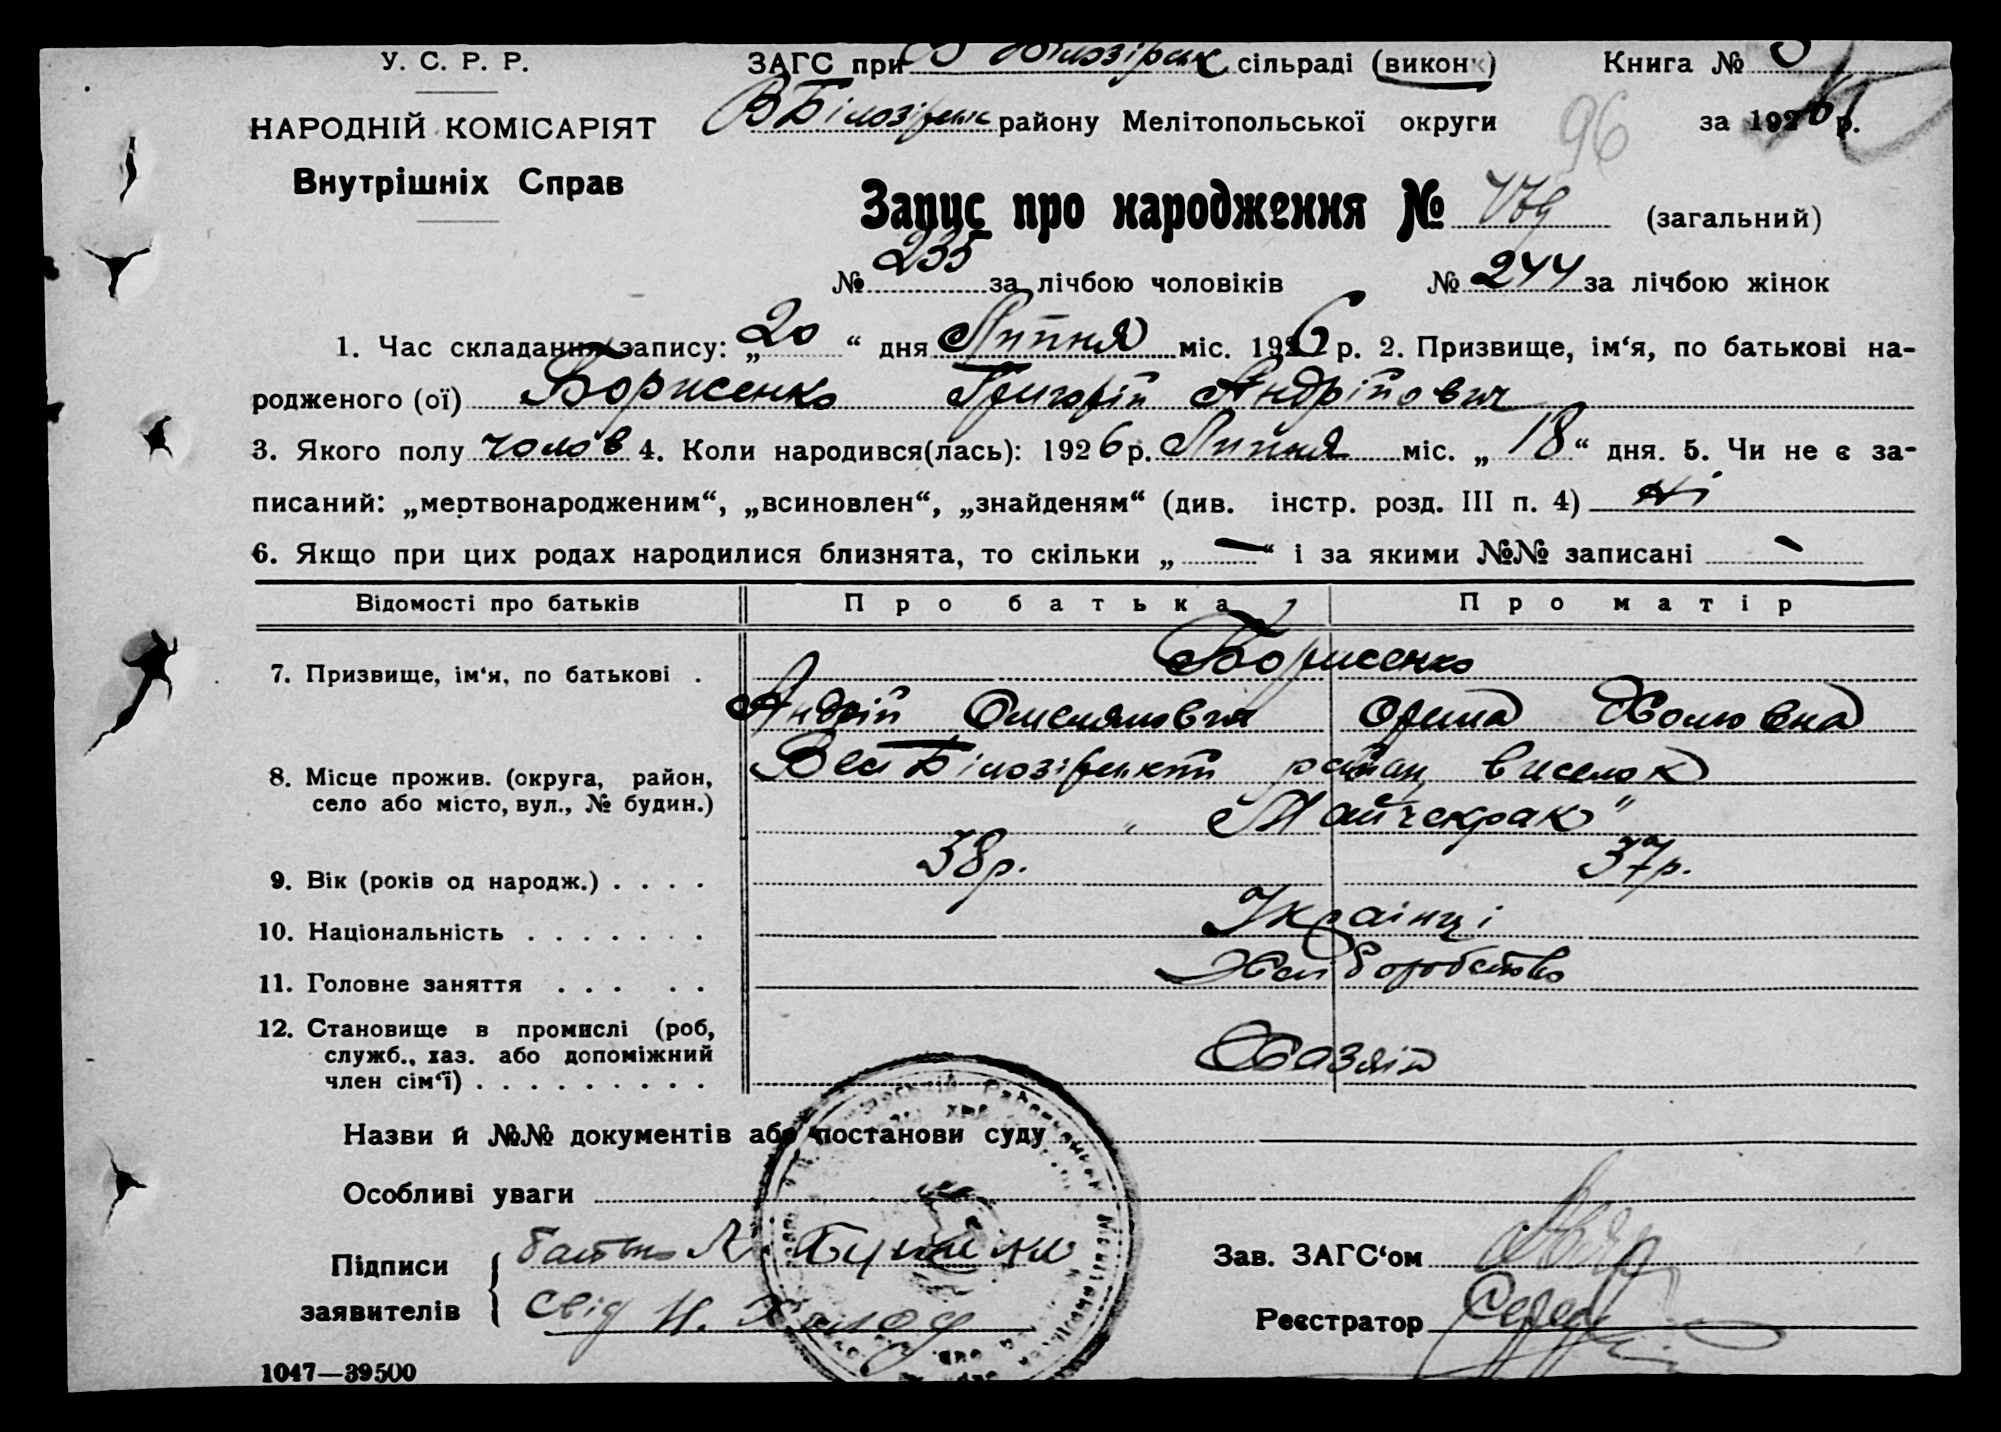 У. С. Р. Р.
ЗАГС при В Білозірск сільраді (викон
Книга №
НАРОДНІЙ КОМІСАРІЯТ
ВБілозірськ району Мелітопольської округи
96
за 1926 р.
Внутрішніх Справ
Запис про народження № (загальний)
№ 235 за лічбою чоловіків № 244 за лічбою жінок
1. Час складання запису: „20“ дня Липня міс. 1926 р. 2. Призвище, ім‘я, по батькові на-
родженого (ої) Борисенко Григорій Андрійович
3. Якого полу чолов 4. Коли народився(лась): 1926 р. Липня міс. „18“ дня. 5. Чи не є за-
писаний: „мертвонародженим“, „всиновлен“, „знайденям“ (див. інстр. розд. III п. 4) Ні
6. Якщо при цих родах народилися близнята, то скільки „—“ і за якими №№ записані -
Відомості про батьків Про батька Про матір
7. Призвище, ім‘я, по батькові . Борисенко
Андрій Омелянович Орина
8. Місце прожив. (округа, район, село або місто, вул., № будин.) Вел Білозірський район виселок
„Майчекрак“
9. Вік (років од народж.) . . . . 38р. 37р.
10. Національність . . . . . . . Українці
11. Головне заняття . . . . . Хліборобство
12. Становище в промислі (роб, служб., хаз. або допоміжний член сім‘ї) . . . . . . . . . Хазяїн
Назви й №№ документів або постанови суду
Особливі уваги
Підписи заявителів { батько
свід Н. Холод
Зав. ЗАГС‘ом
Реєстратор
1047—39500